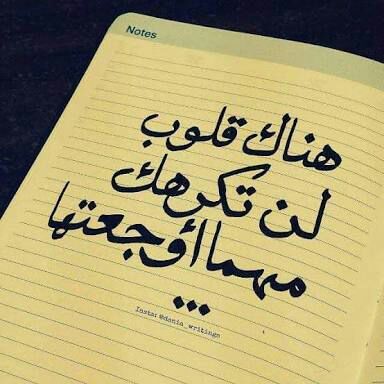 Notes
هناك قلوب
لن تكرهك
مهما أوجعتها
...
Insta: @dania_writings